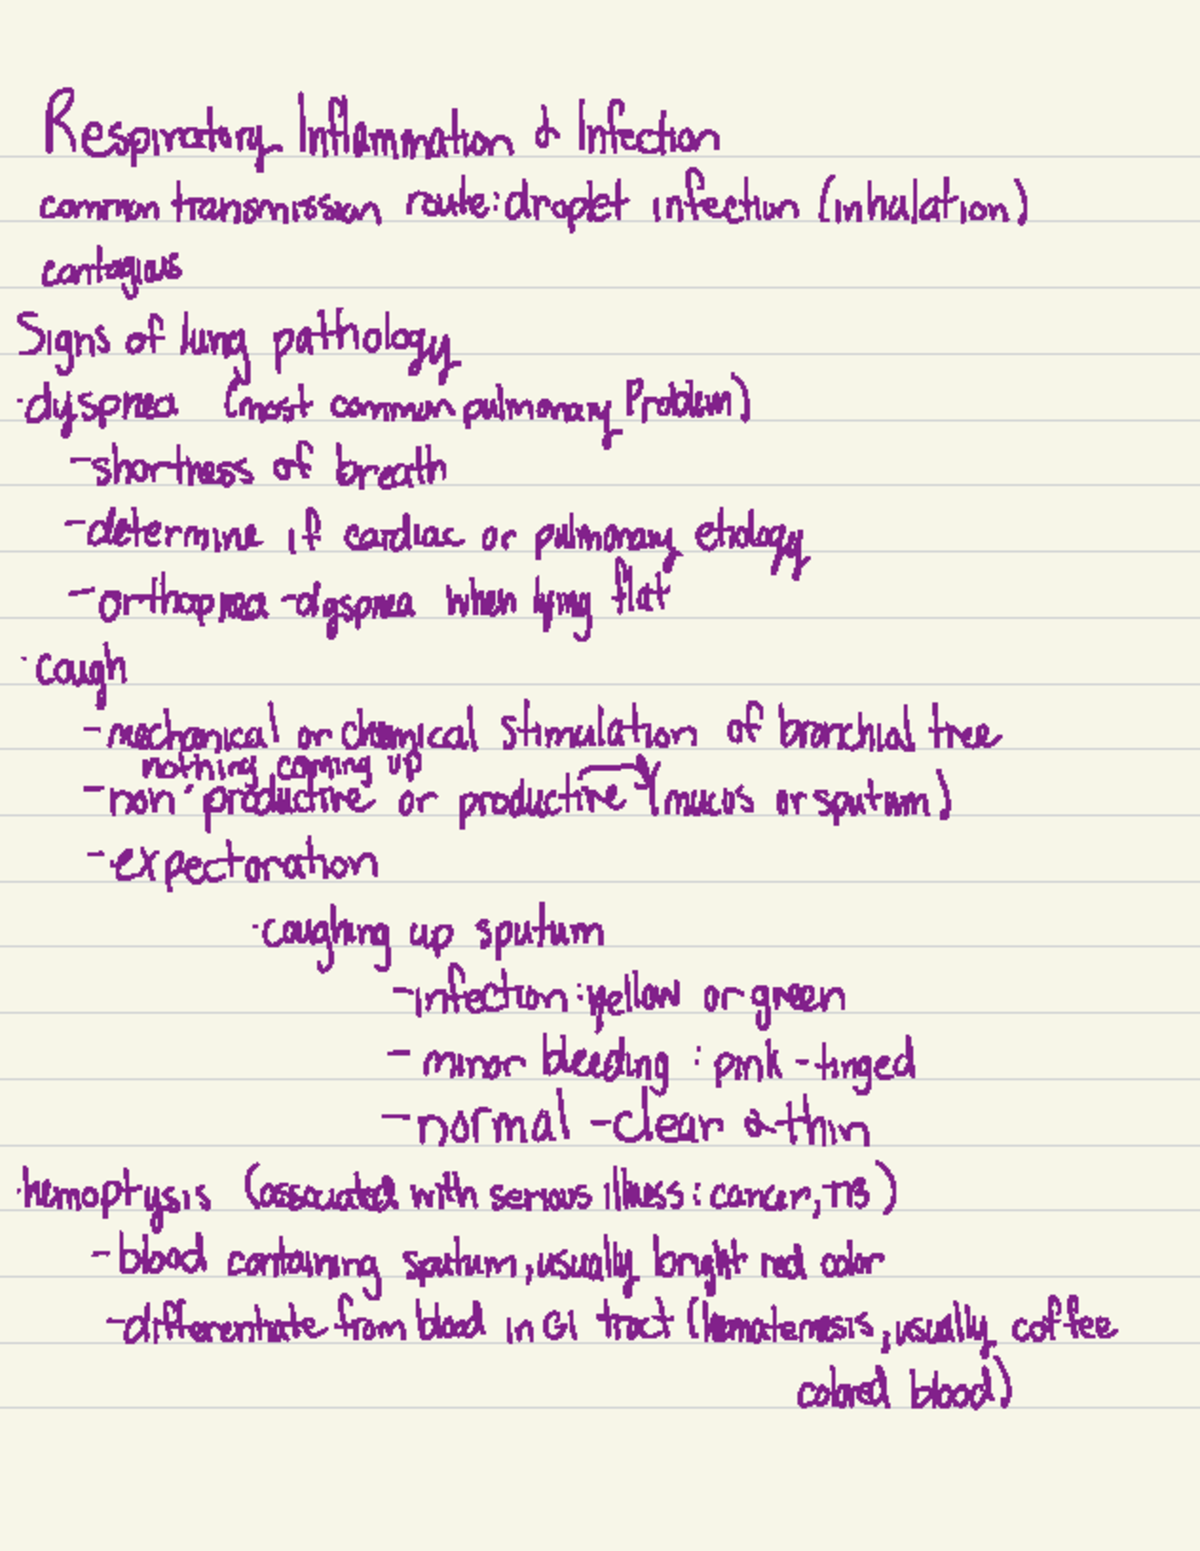 Respiratory Inflammation & Infection
common transmission route: droplet infection (inhalation)
contagious
Signs of lung pathology
·dyspnea (most common pulmonary Problem)
-shortness of breath
-determine if cardiac or pulmonary etiology
-orthopnea -dyspnea when lying flat
·cough
-mechanical or chemical stimulation of bronchial tree
nothing coming up
-non productive or productive (mucos or sputum)
-expectoration
·coughing up sputum
-infection: yellow or green
- minor bleeding : pink-tinged
-normal -clear & thin
·hemoptysis (associated with serious illness: cancer, TB)
-blood containing sputum, usually bright red color
-differentiate from blood in GI tract (hematemesis, usually coffee
colored blood)